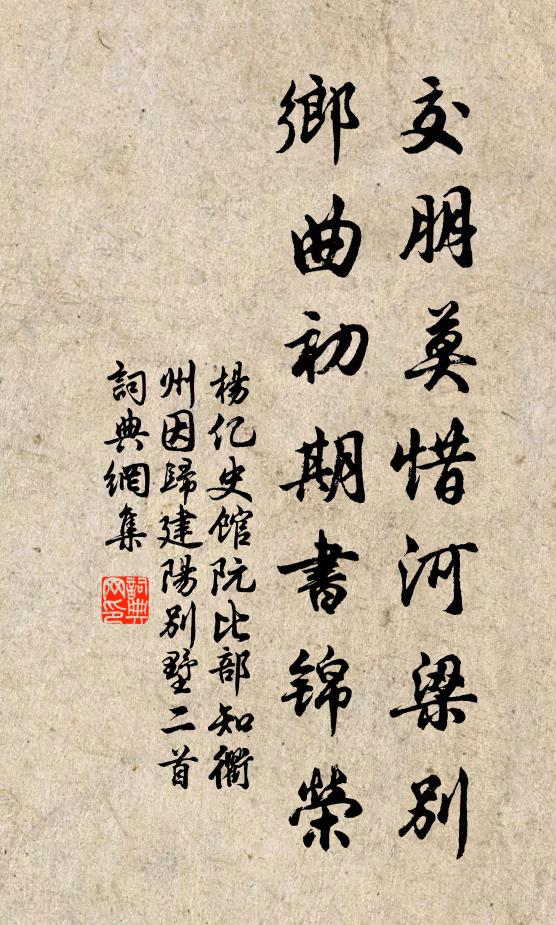 交朋莫惜河梁别
鄉曲初期書錦榮
楊亿史館阮比部知衢
州因歸建陽别墅二首
詞典網集
詞典
网印